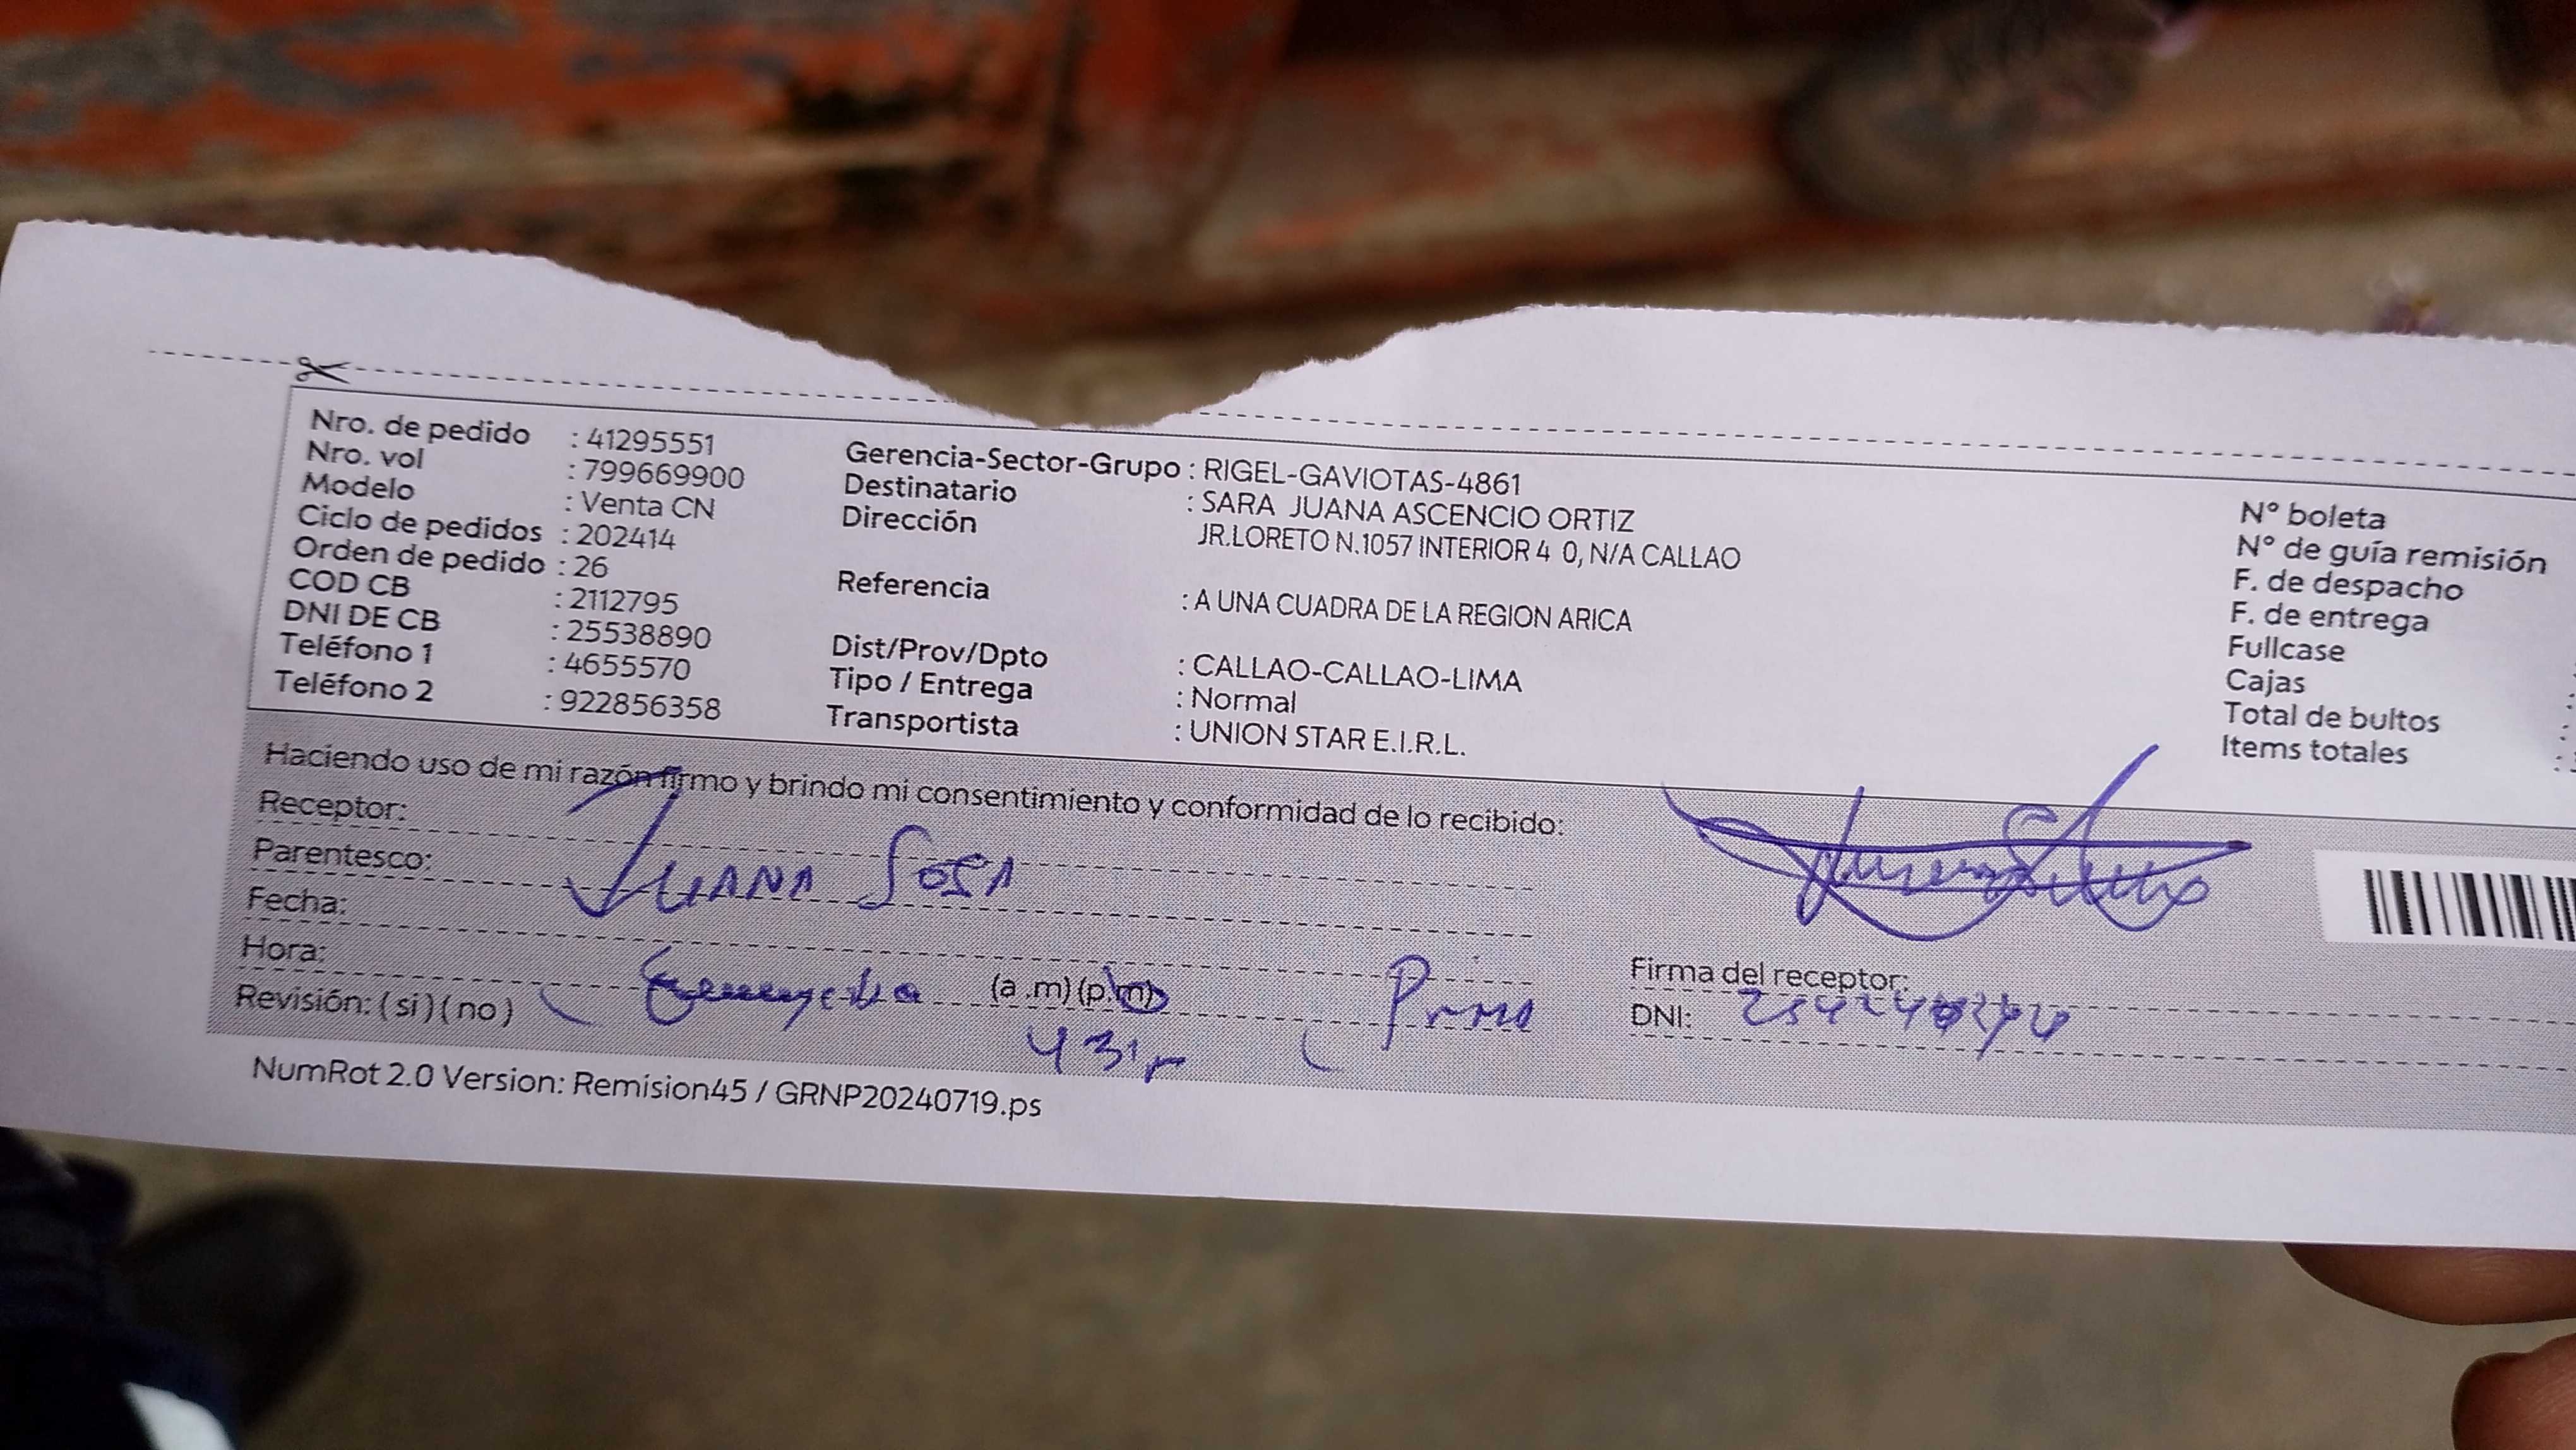 Nro. de pedido : 41295551
Nro. vol : 799669900
Modelo : Venta CN
Ciclo de pedidos : 202414
Orden de pedido : 26
COD CB : 2112795
DNI DE CB : 25538890
Teléfono 1 : 4655570
Teléfono 2 : 922856358
Gerencia-Sector-Grupo : RIGEL-GAVIOTAS-4861
Destinatario : SARA JUANA ASCENCIO ORTIZ
Dirección JR.LORETO N.1057 INTERIOR 4 0, N/A CALLAO
Referencia : A UNA CUADRA DE LA REGION ARICA
Dist/Prov/Dpto : CALLAO-CALLAO-LIMA
Tipo / Entrega : Normal
Transportista : UNION STAR E.I.R.L.
N° boleta
N° de guía remisión
F. de despacho
F. de entrega
Fullcase
Cajas :
Total de bultos :
Items totales :
Haciendo uso de mi razón firmo y brindo mi consentimiento y conformidad de lo recibido:
Receptor:
Parentesco: JUANA SOSA
Fecha:
Hora: (a .m) (p.m)
Revisión: ( si ) ( no )
Firma del receptor:
DNI:
NumRot 2.0 Version: Remision45 / GRNP20240719.ps